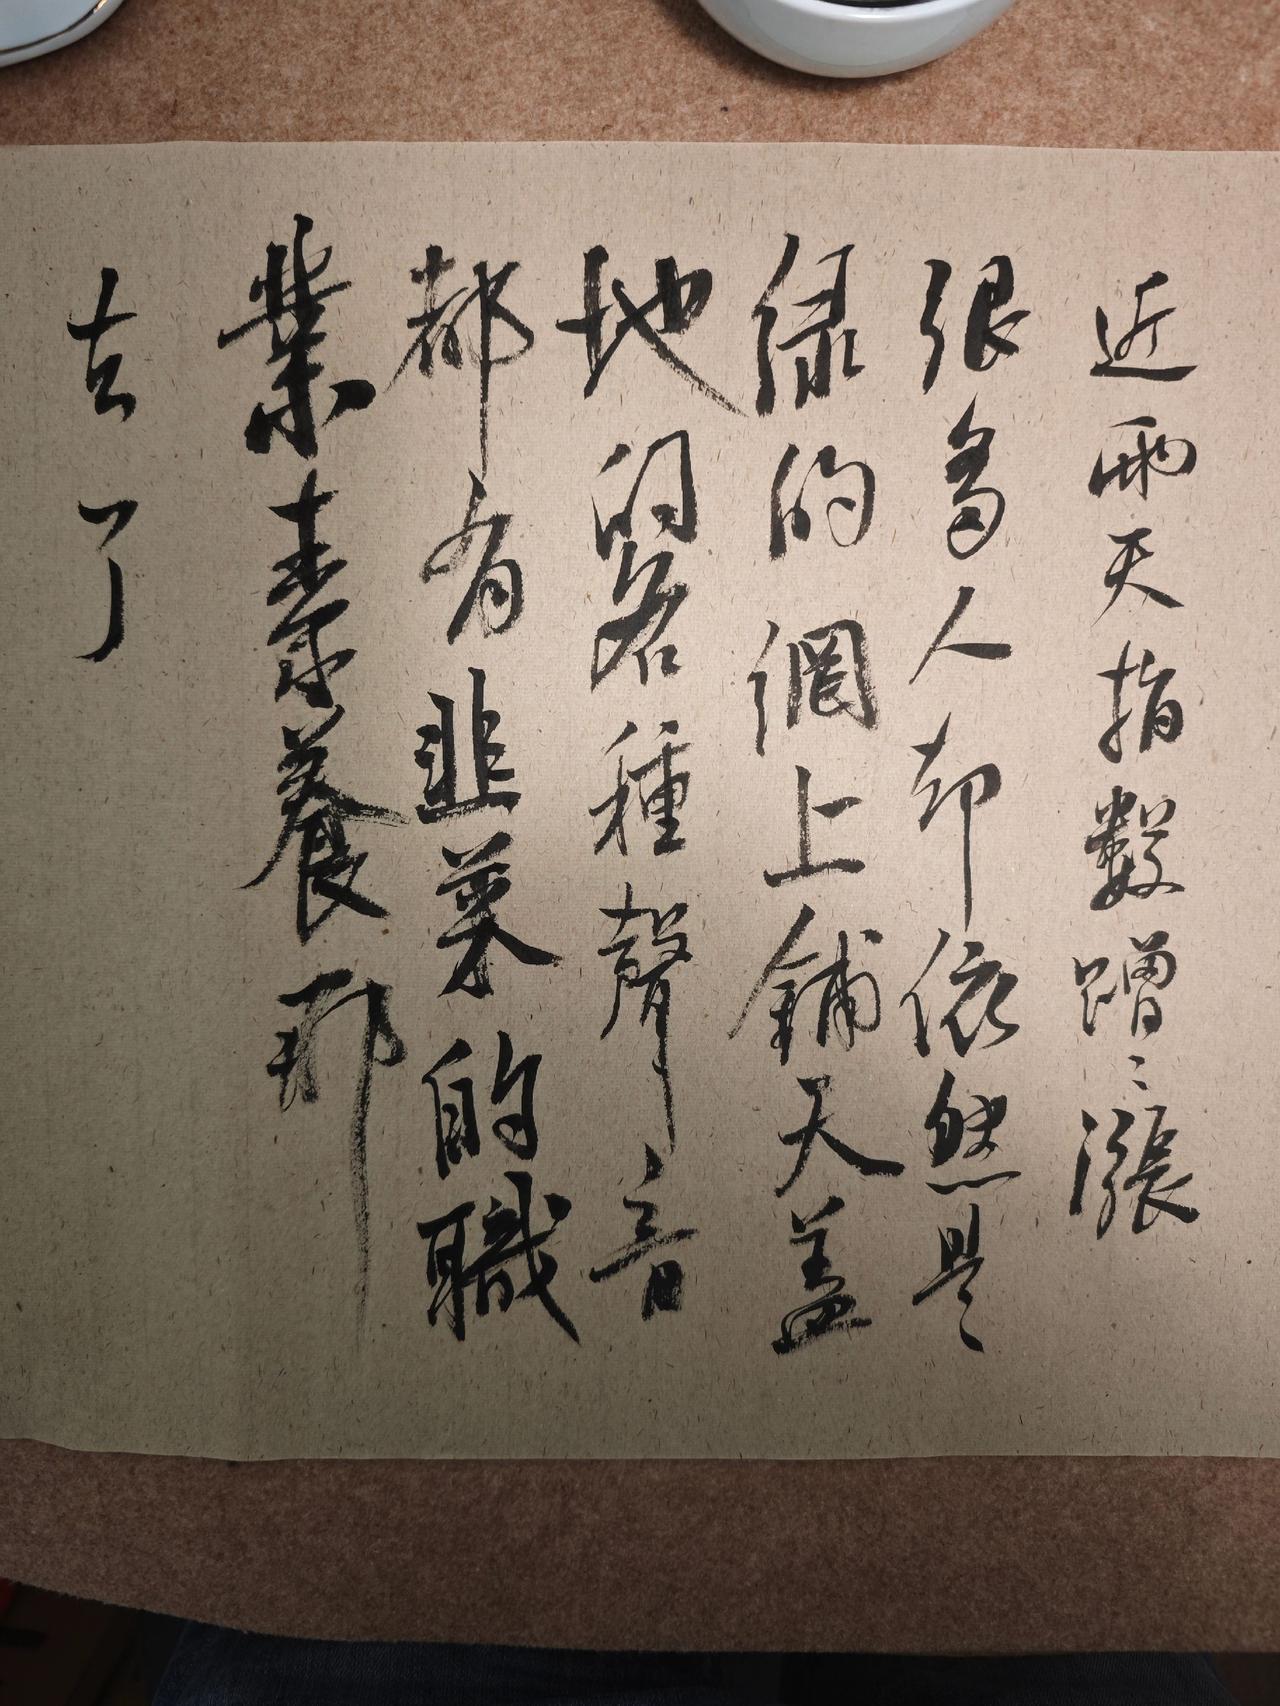 近兩天指數蹭々漲
很多人却依然是
绿的網上鋪天盖
地的各種聲音
都有韭菜的職
業素養那
去了